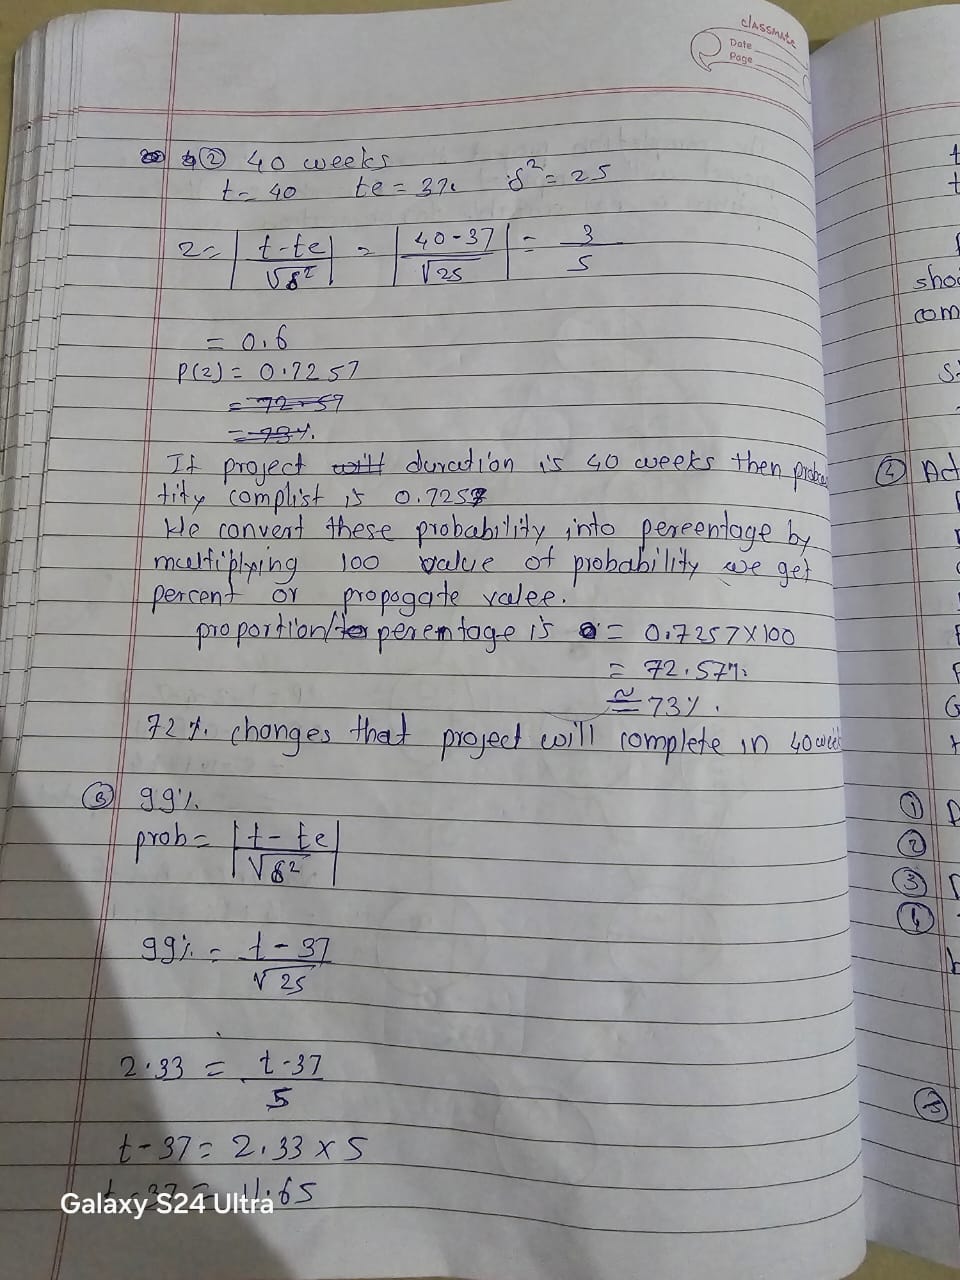 classmate
Date
Page
② 40 weeks
t = 40 te = 37. s² = 25
z = |t-te / √s²| = |40-37 / √25| = 3/5
= 0.6
P(z) = 0.7257
= 72.57
= 73%.
If project will duration is 40 weeks then proba
tity complist is 0.7257
We convert these probability into pereentage by
multiplying 100 value of probability we get
percent or propogate valee.
proportion/to perentage is = 0.7257×100
= 72.57%.
≅ 73%.
72%. changes that project will complete in 40 week
③ 99%.
prob = |t-te / √s²|
99%. = t-37 / √25
2.33 = t-37 / 5
t-37 = 2.33 × 5
t-37 = 11.65
Galaxy S24 Ultra
t
t
shou
com
② Act
①
②
③
④